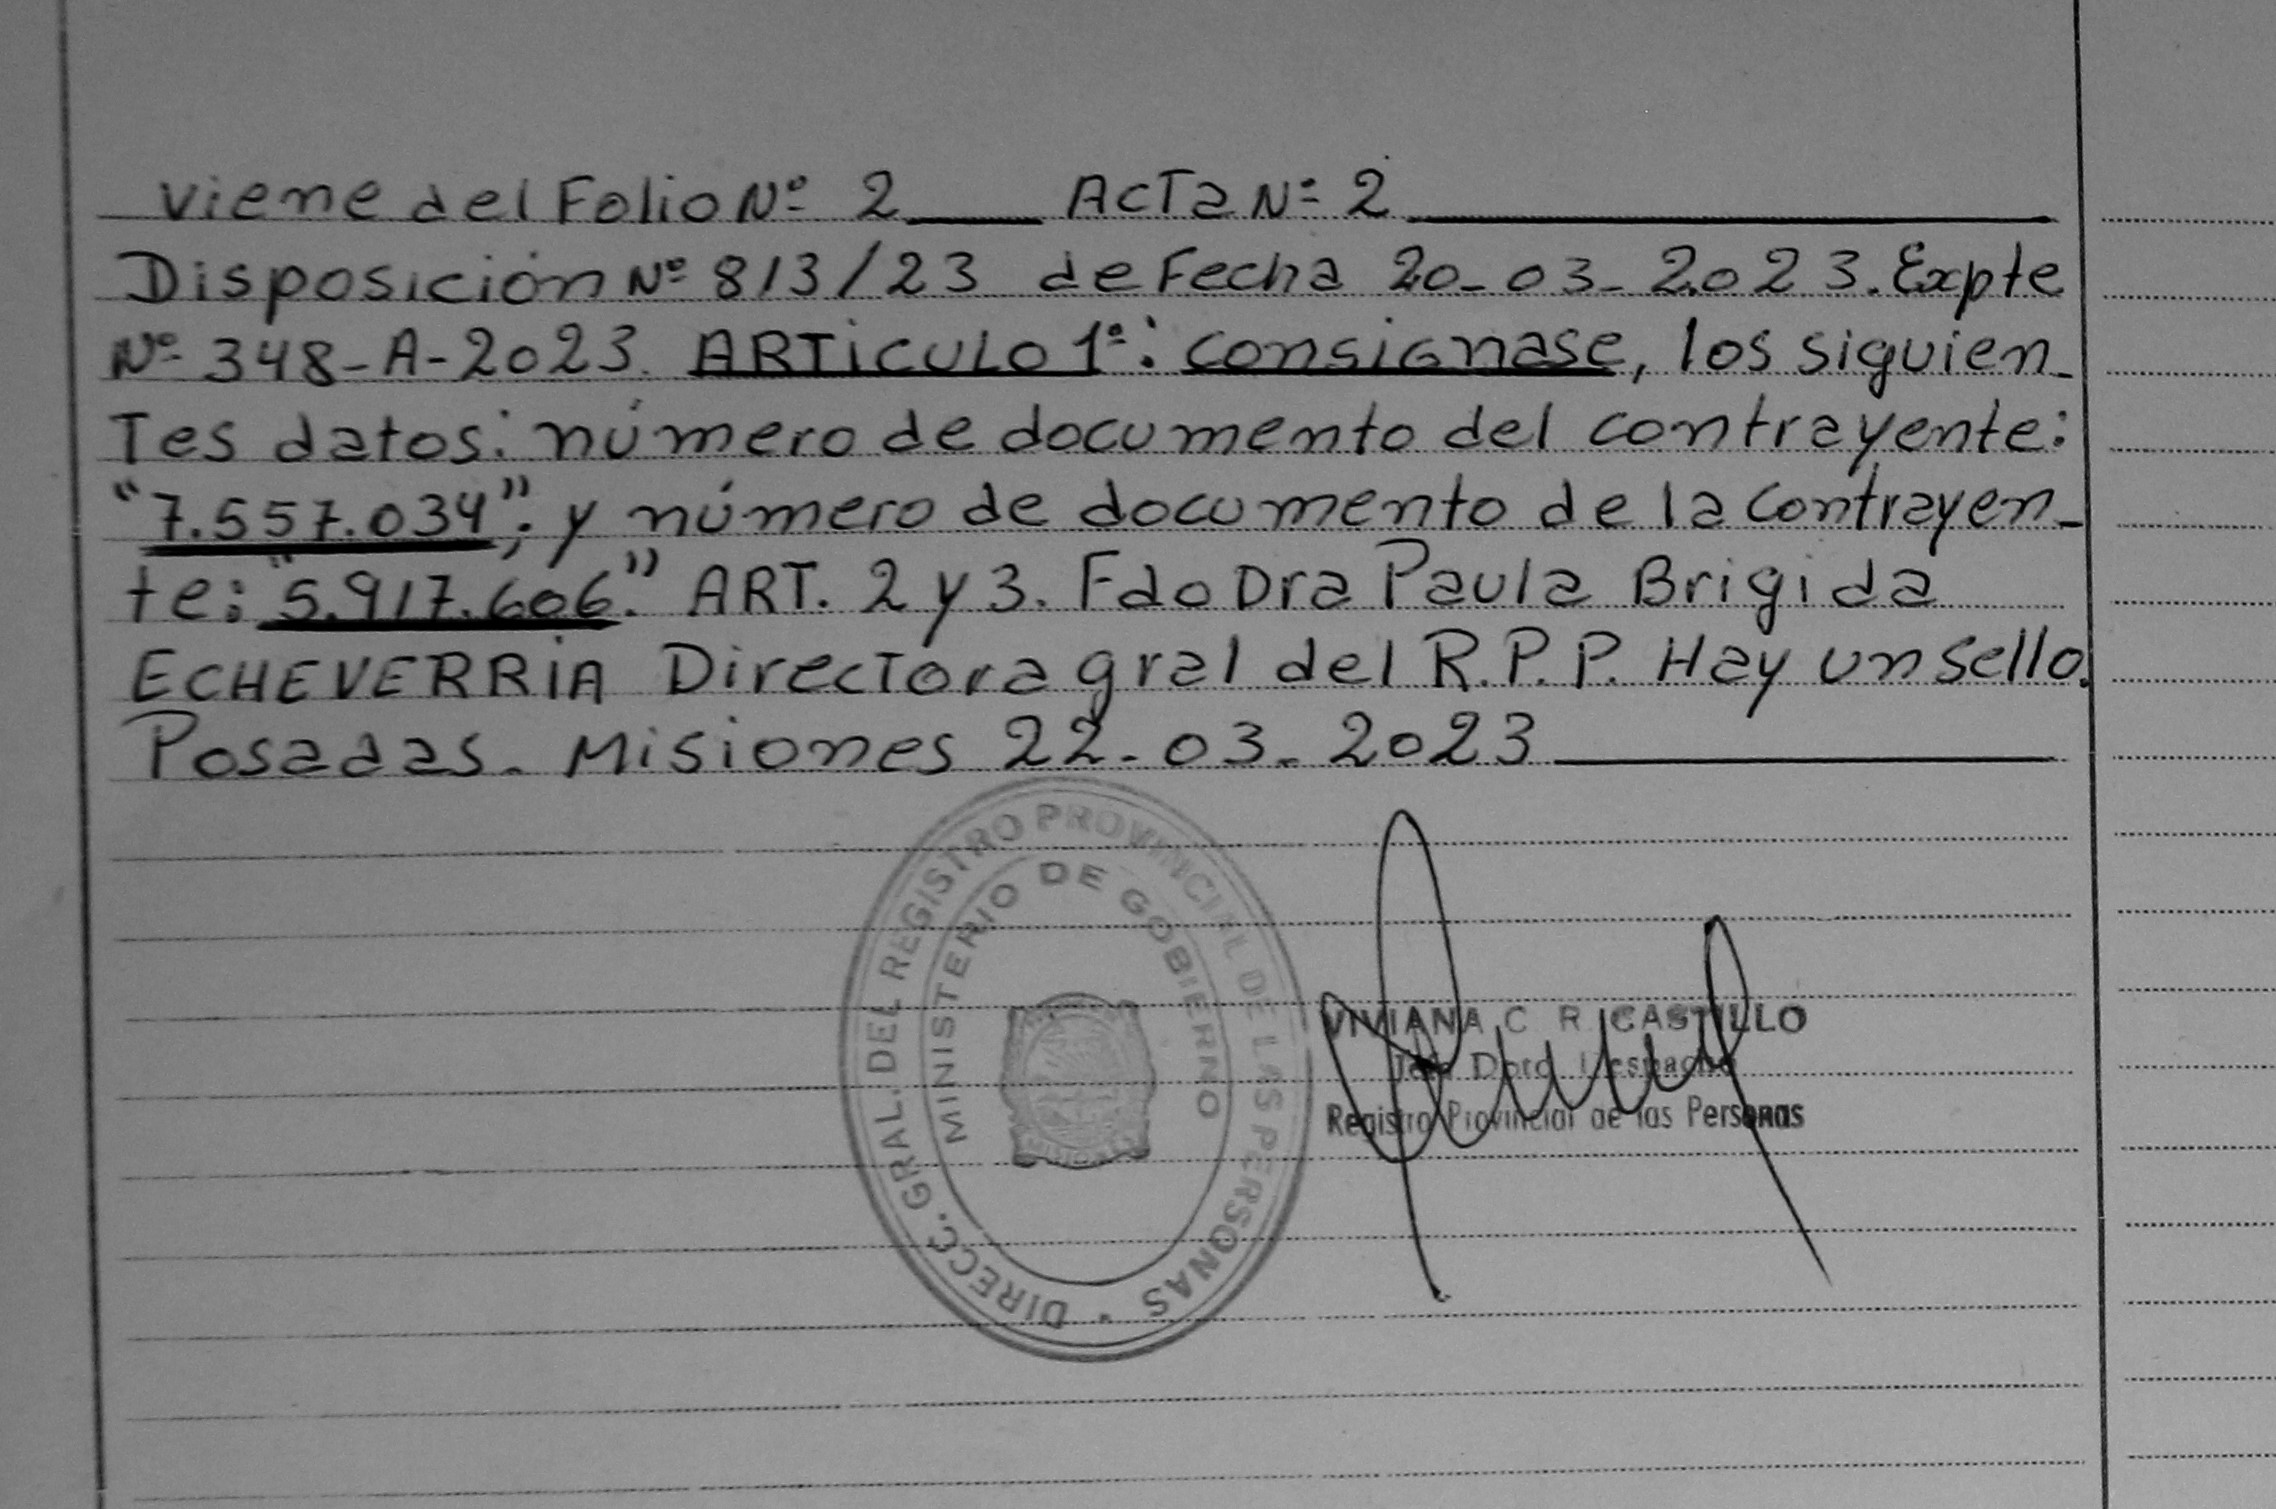 Viene del Folio Nº 2 Acta Nº 2
Disposición Nº 813/23 de Fecha 20-03-2023. Expte
Nº 348-A-2023. ARTICULO 1º: consignase, los siguien-
Tes datos: número de documento del contrayente:
"7.557.034"; y número de documento de la contrayen-
te: "5.917.606." ART. 2 y 3. Fdo Dra Paula Brigida
ECHEVERRIA Directora gral del R.P.P. Hay un sello.
Posadas. Misiones 22-03-2023
DIRECC. GRAL. DEL REGISTRO PROVINCIAL DE LAS PERSONAS
MINISTERIO DE GOBIERNO
VIVIANA C R CASTILLO
Jefa Dpto. Despacho
Registro Provincial de las Personas